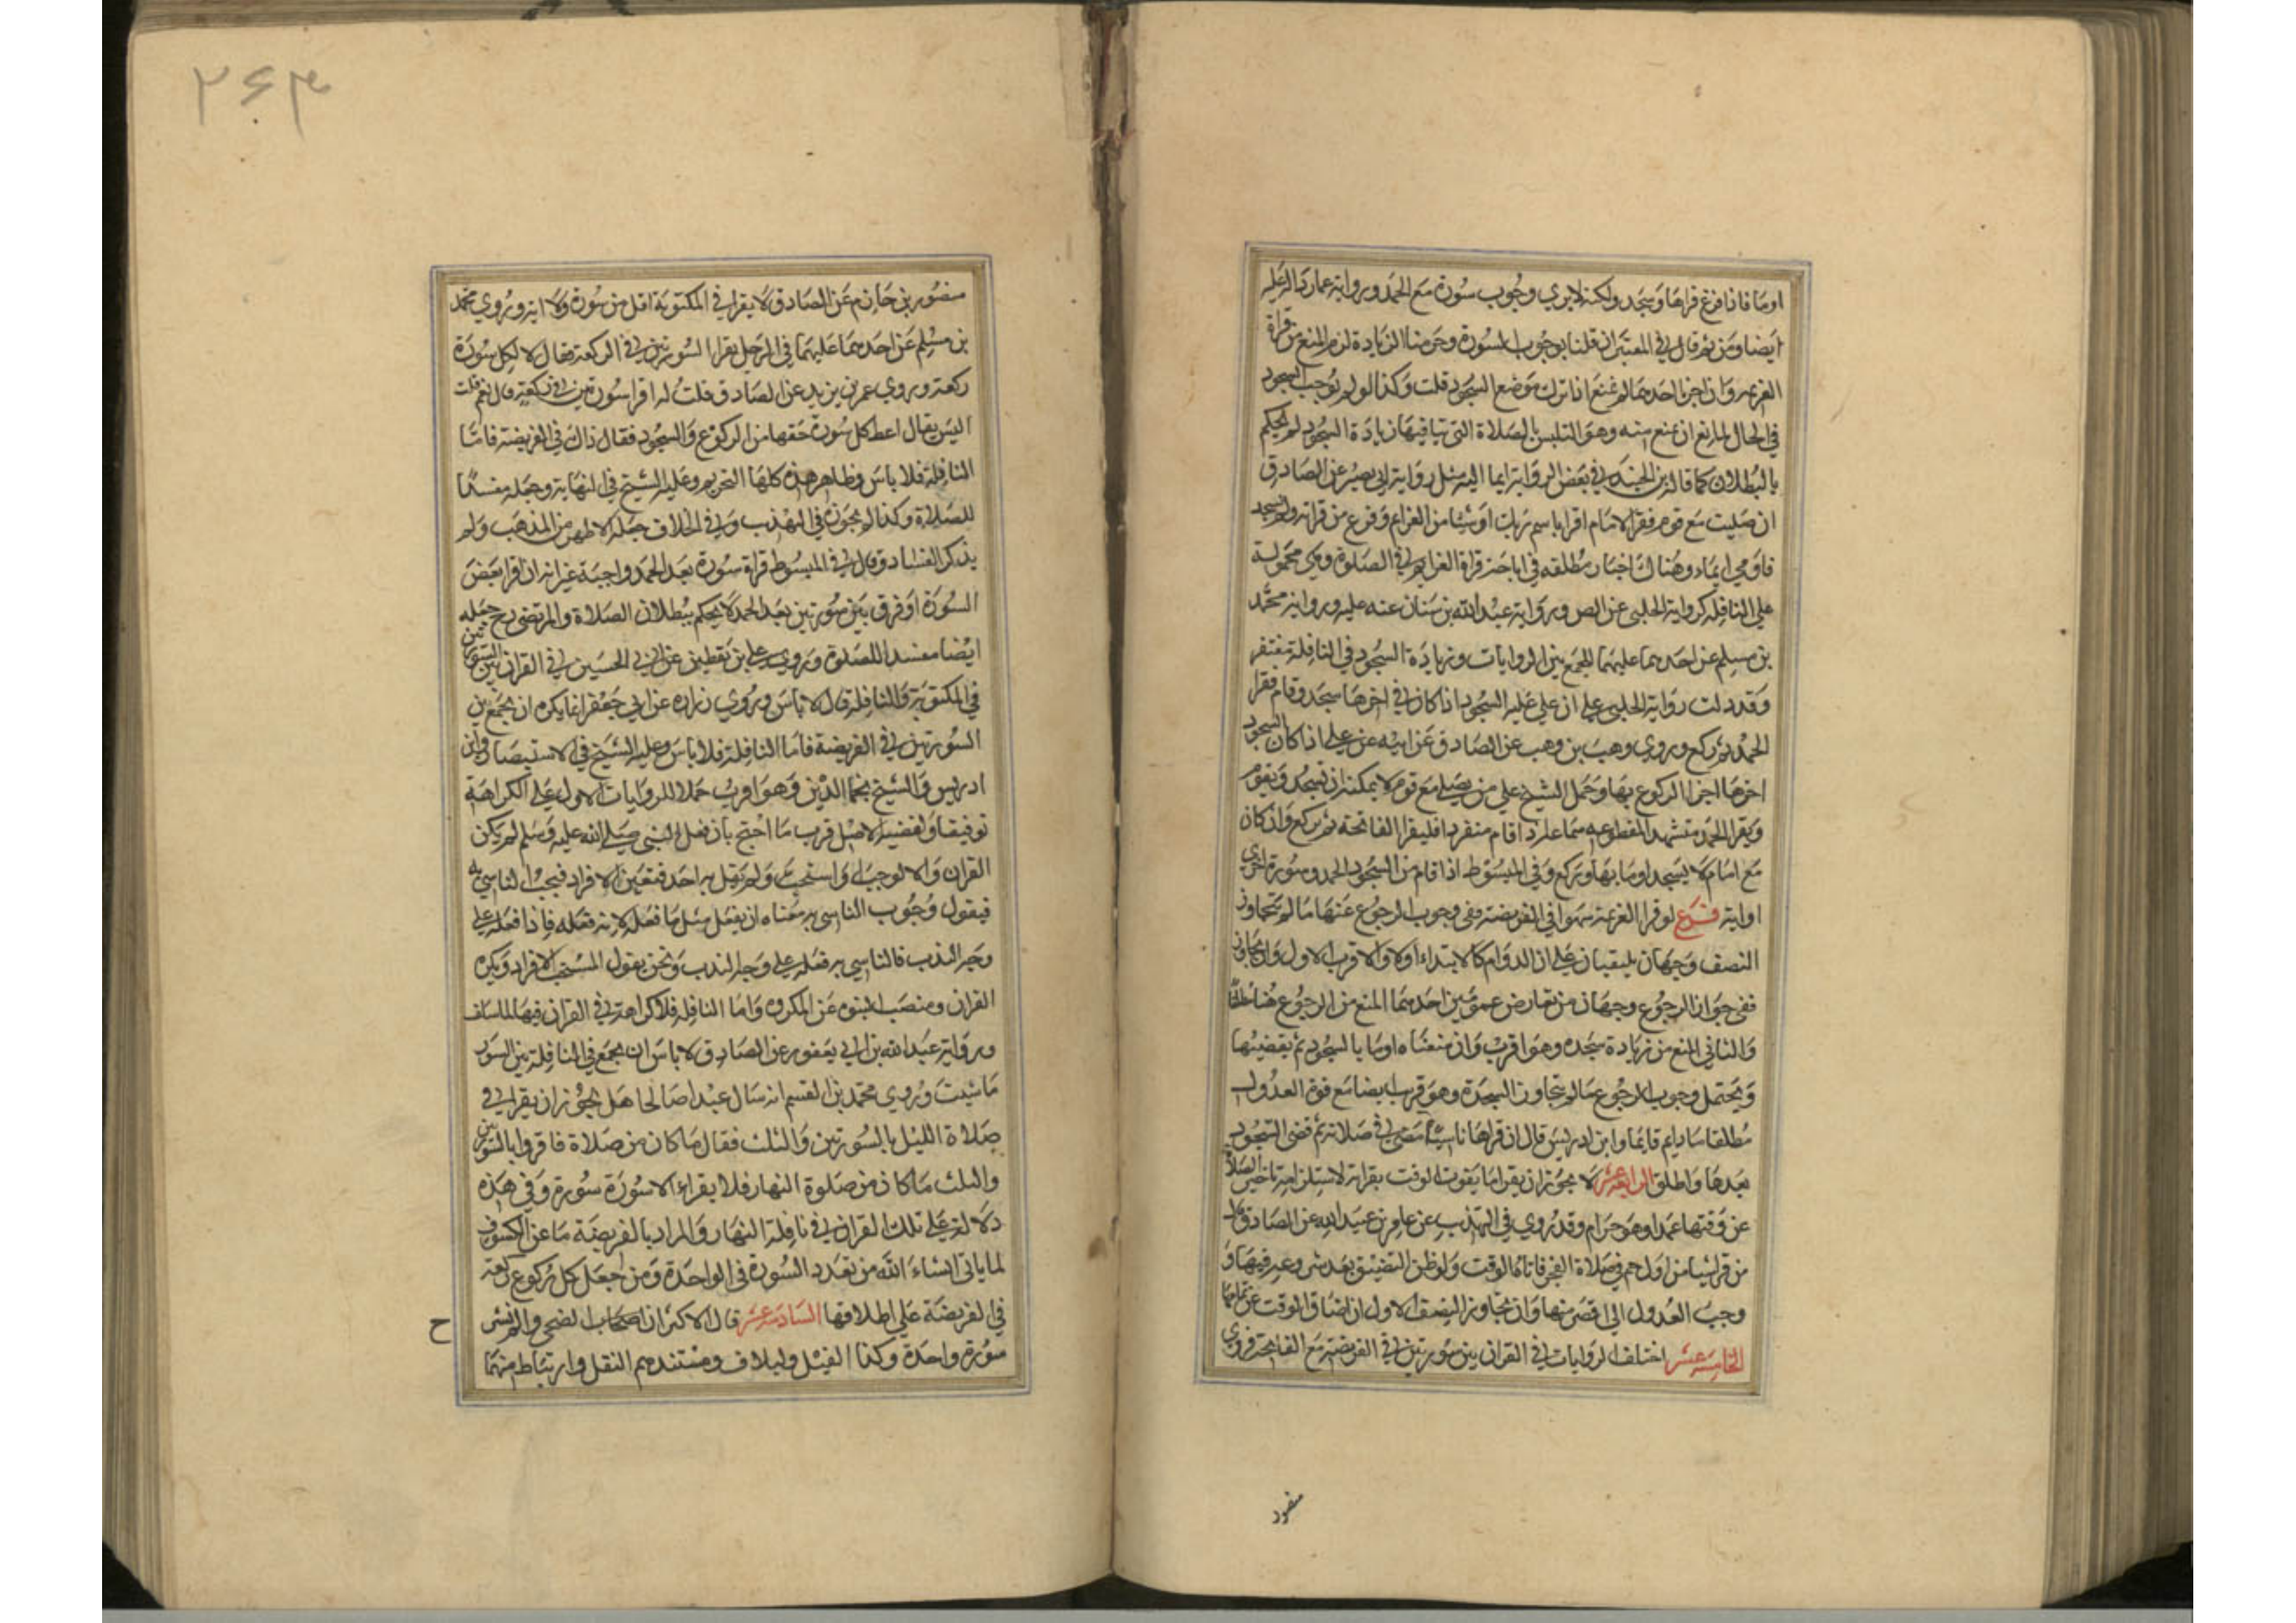 اوما فاذا فرغ قراها وسجد ولكنه لا يري وجوب سورة مع الحمد ورواية عمار دالة عليه
ايضا ومن ثم قال في المعتبر ان قلنا بوجوب السورة وحرمنا الزيادة لزم المنع من قراة
العزيمة وان اجزنا احدهما لم نمنع اذا ترك موضع السجود قلت وكذا لو لم نوجب السجود
في الحال لمانع ان يمنع منه وهو التلبس بالصلاة التي تنافيها زيادة السجود لم نحكم
بالبطلان كما قاله ابن الجنيد وفي بعض الرواية ايما اليه مثل رواية ابي بصير عن الصادق
ان صليت مع قوم فقرا الامام اقرا باسم ربك او شيئا من العزايم وفرغ من قراته ولم يسجد
فاومي ايماء وهناك اخبار مطلقه في اباحة قراة العزايم في الصلوة وهي محمولة
علي النافله كرواية الحلبي عن الص ورواية عبد الله بن سنان عنه عليه ورواية محمد
بن مسلم عن احدهما عليهما للجمع بين الروايات وزيادة السجود في النافلة مغتفر
وقد دلت رواية الحلبي علي ان علي عليه السجود اذا كان في اخرها سجد وقام فقرا
الحمد ثم ركع وروي وهب بن وهب عن الصادق عن ابيه عن علي اذا كان السجود
اخرها اجزا الركوع بها وحمل الشيخ علي من يصلي مع قوم لا يمكنه ان يسجد ويقوم
ويقرا الحمد مستشهدا بمقطوعه سماعة اذا قام منفردا فليقرا الفاتحة ثم يركع وان كان
مع امام لا يسجد اوما بها ويركع وفي المبسوط اذا قام من السجود الحمد وسورة اخري
او اية فرع لو قرا العزيمة سهوا في الفريضة ففي وجوب الرجوع عنها ما لم يتجاوز
النصف وجهان يلبقيان علي ان الدوام كالابتداء اولا والاقرب الاول وان تجاوز
ففي جواز الرجوع وجهان من تعارض عمومين احدهما المنع من الرجوع هنا مطلقا
والثاني المنع من زيادة سجده وهو اقرب وان منعناه اوما بالسجود ثم يقضيها
ويحتمل وجوب الرجوع ما لم يتجاوز السجدة وهو قريب ايضا مع قوة العدول
مطلقا ما دام قايما وابن ادريس قال ان قراها ناسيا مضي في صلاته ثم قضي السجود
بعدها واطلق الرابعه عشر لا يجوز ان يقرا ما يفوت الوقت بقراته لاستلزامه تاخير الصلاة
عن وقتها عمدا وهو حرام وقد روي في التهذيب عن عامر بن عبد الله عن الصادق عليه
من قرا شيئا من اول حم في صلاة الفجر فاتاه الوقت ولو ظن التضيق بعد شروعه فيها و
وجب العدول الي اقصر منها وان تجاوز النصف الاول ان ضاق الوقت عن تمامها
الخامسه عشر اختلف الروايات في القران بين سورتين في الفريضة مع الفاتحة فروي
منصور
۲۶۳
منصور بن حازم عن الصادق لا يقرا في المكتوبة اقل من سورة ولا اية وروي محمد
بن مسلم عن احدهما عليهما في الرجل يقرا السورتين في الركعة فقال لا لكل سورة
ركعة وروي عمر بن يزيد عن الصادق قلت له اقرا سورتين في ركعة قال نعم قلت
اليس يقال اعط كل سورة حقها من الركوع والسجود فقال ذاك في الفريضة فاما
النافلة فلا باس وظاهر هذه كلها التحريم وعليه الشيخ في النهاية وجعله مفسدا
للصلاة وكذا لم يجوزه في التهذيب وفي الخلاف جعله الاظهر من المذهب ولم
يذكر الفساد وقال في المبسوط قراة سورة بعد الحمد واجبة غير انه ان قرا بعض
السورة او فرق بين سورتين بعد الحمد لا يحكم ببطلان الصلاة والمرتضي رح جعله
ايضا مفسدا للصلوة وروي علي بن يقطين عن ابي الحسين في القران بين السورتين
في المكتوبة والنافلة قال لا باس وروي زراره عن ابي جعفر انما يكره ان يجمع بين
السورتين في الفريضة فاما النافلة فلا باس وعليه الشيخ في الاستبصار وابن
ادريس والشيخ نجم الدين وهو اقرب حملا للروايات الاول علي الكراهة
توفيقا ولقضية الاصل قرب ما احتج بان فعل النبي صلي الله عليه وسلم لم يكن
القران والا لوجب او استحب ولم يقل به احد فتعين الافراد فيجب التاسي به
فيقول وجوب التاسي به معناه ان يفعل مثل ما فعل لانه فعله فاذا فعله علي
وجه الندب فالتاسي به فعله علي وجه الندب ونحن بقول المستحب الافراد ويكره
القران ومنصب النبوه عن المكروه واما النافلة فلا كراهة في القران فيها لما سلف
ورواية عبد الله بن ابي يعفور عن الصادق لا باس ان تجمع في النافلة بين السور
ما شيت وروي محمد بن القسم انه سال عبدا صالحا هل يجوز ان يقرا في
صلاة الليل بالسورتين والثلث فقال ما كان من صلاة فاقروا بالسورتين
والثلث وما كان من صلوة النهار فلا يقراء الا سورة سورة وفي هذه
دلالة علي تلك القران في نافلة النهار والمراد بالفريضة ما عن الكسوف
لما ياتي انشاء الله من تعدد السورة في الواحدة ومن جعل كل ركوع ركعة
في الفريضة علي اطلاقها السادسه عشر قال الاكثر ان اصحابنا الضحي والم نشرح
سورة واحدة وكذا الفيل ولايلاف ومستندهم النقل وارتباط منهما